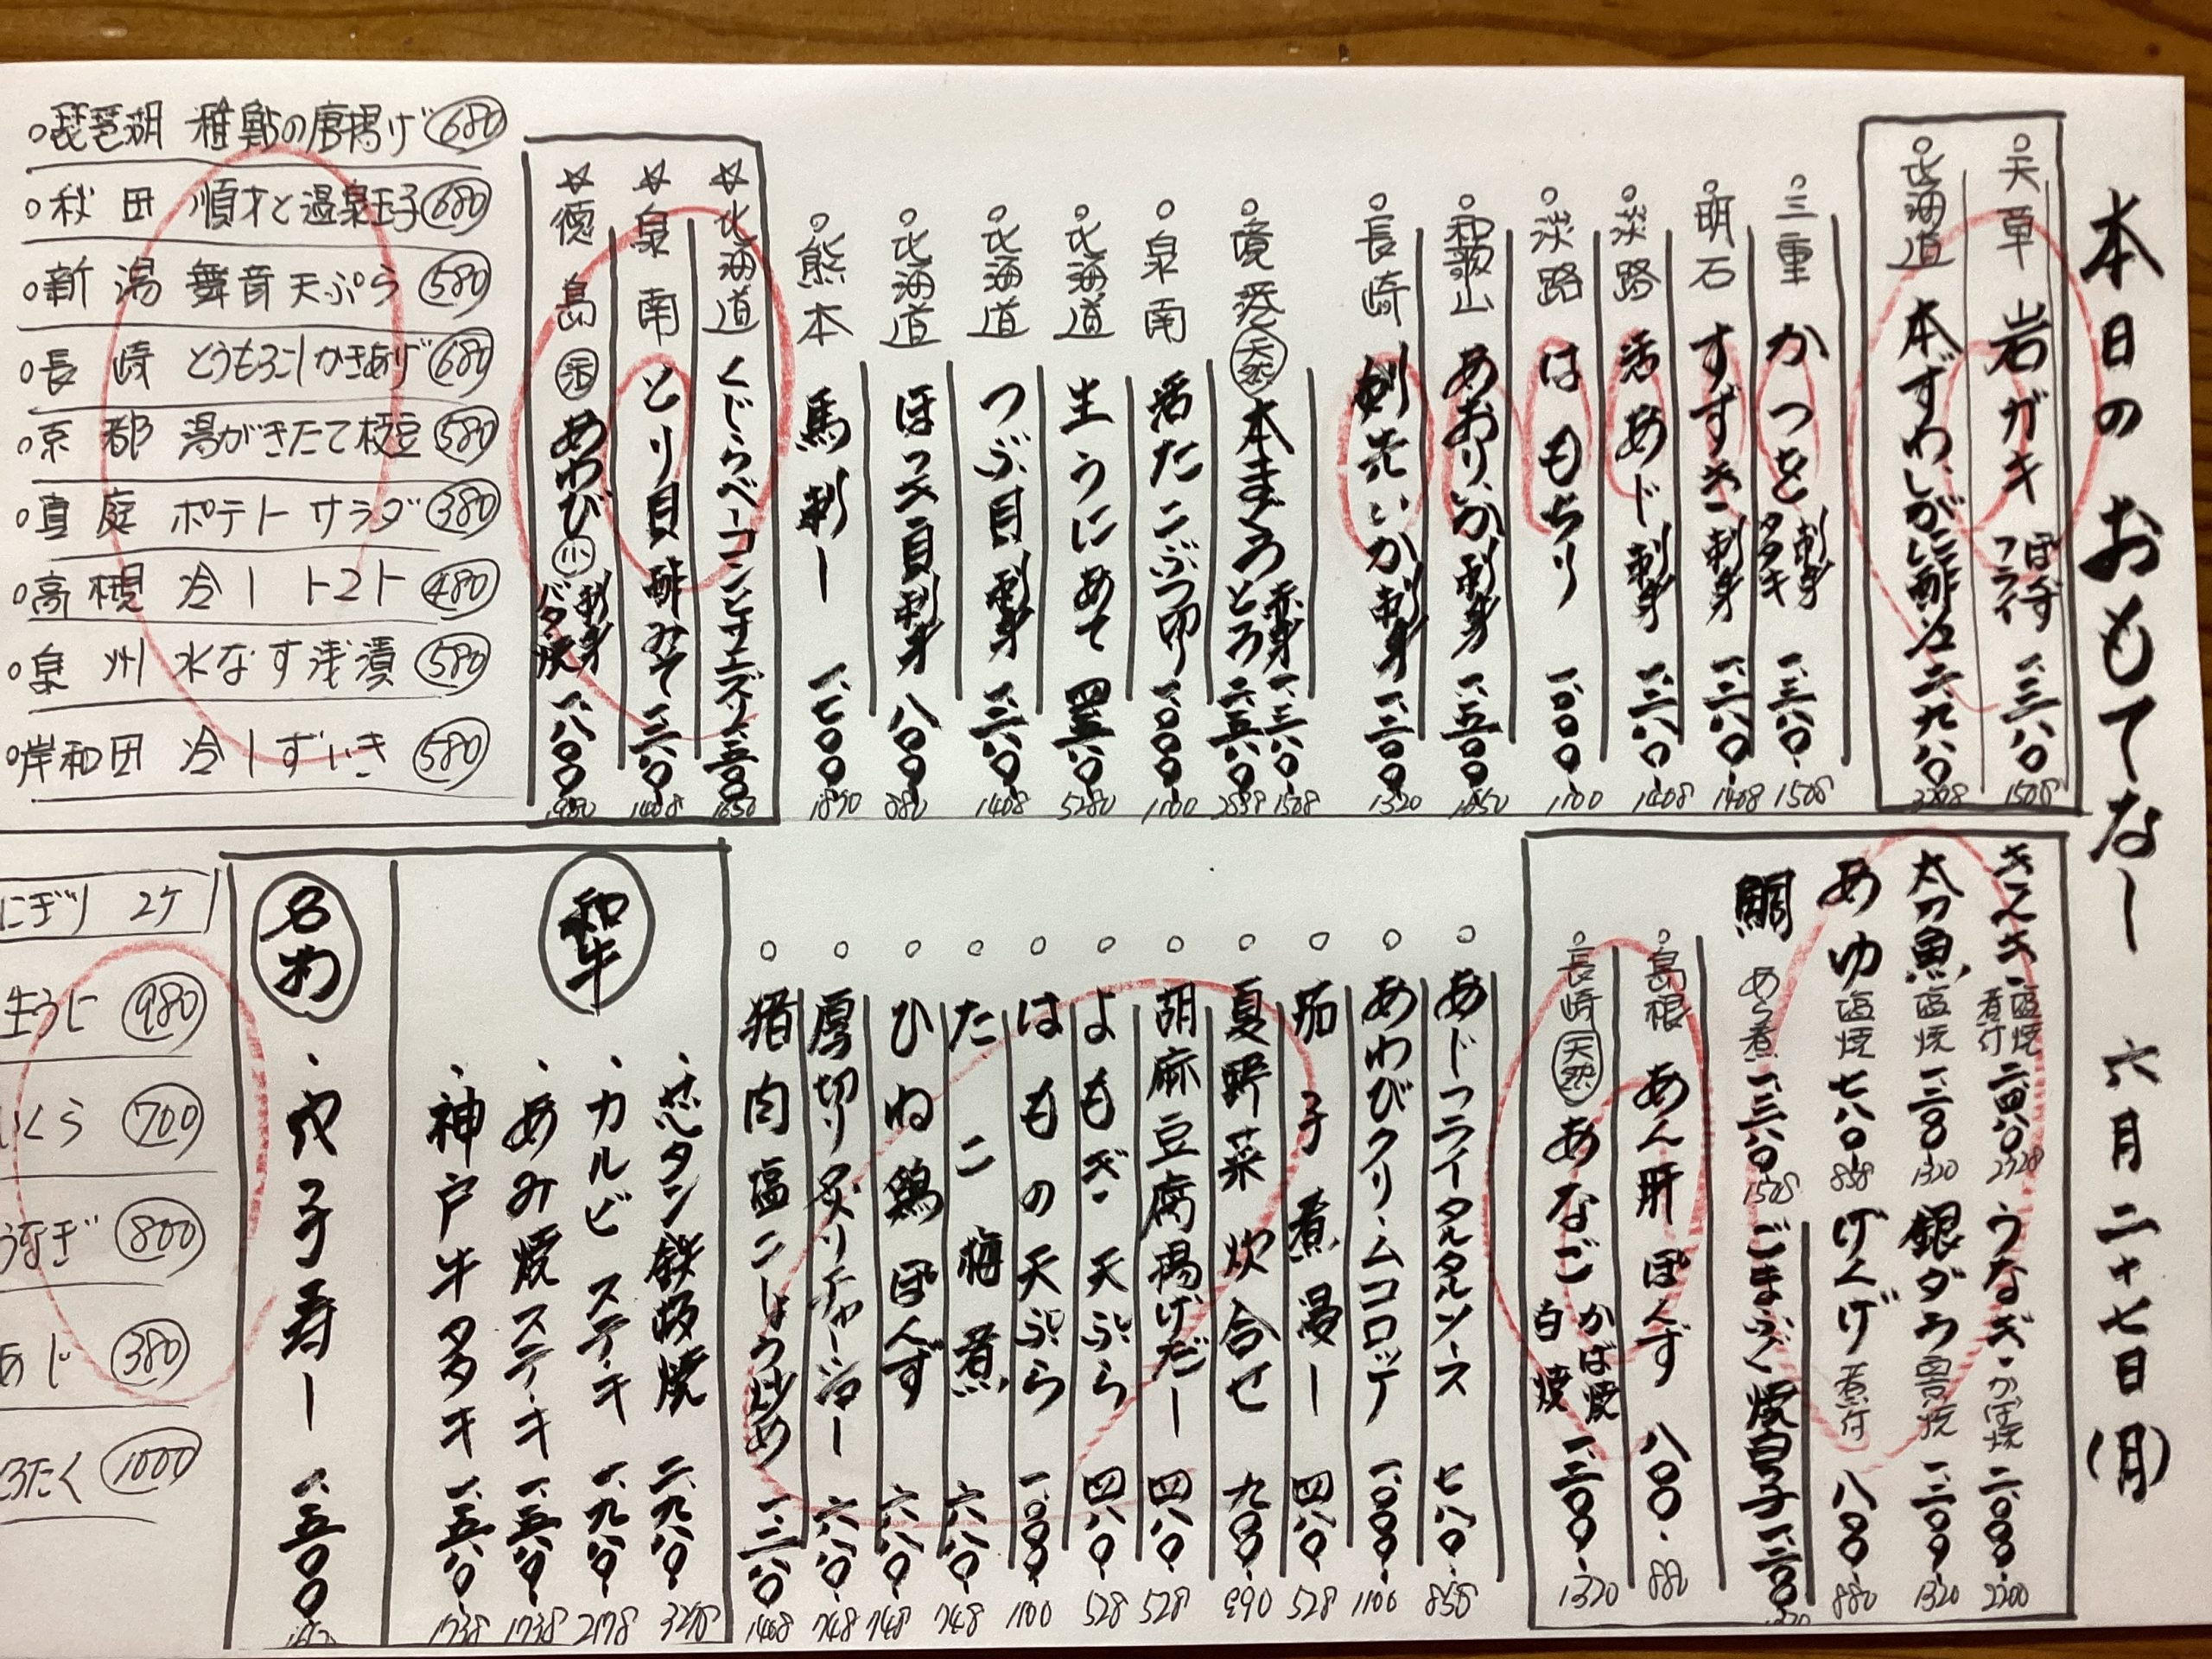 本日のおもてなし 六月二十七日(月)
天草 岩ガキ ぽん酢 フライ 一、三八〇 1508
北海道 本ずわいがに酢 二、九八〇
三重 かつを 刺身 タタキ 一、三八〇 1508
明石 すずき 刺身 一、二八〇 1408
淡路 活あじ刺身 一、二八〇 1408
淡路 はもちり 一、〇〇〇 1100
和歌山 あおりいか刺身 一、五〇〇 1650
長崎 剣先いか刺身 一、二〇〇 1320
境港 天然 本まぐろ 赤身 一、三八〇 1508 とろ 二、五八〇
泉南 活たこぶつ切り 一、〇〇〇 1100
北海道 生うにあて 四、八〇〇 5280
北海道 つぶ貝刺身 一、二八〇 1408
北海道 ほっき貝刺身 八〇〇 880
熊本 馬刺し 一、七〇〇 1870
☆北海道 くじらベーコンとサエズリ 一、五〇〇 1650
☆泉南 とり貝 酢みそ 一、二八〇 1408
☆徳島 活 あわび 小 刺身 バタ焼 一、八〇〇 1980
琵琶湖 稚鮎の唐揚げ 680
秋田 順才と温泉玉子 680
新潟 舞音天ぷら 580
長崎 とうもろこしかきあげ 680
京都 湯がきたて枝豆 580
真庭 ポテトサラダ 380
高槻 冷しトマト 480
泉州 水なす浅漬 580
岸和田 冷しずいき 580
きんき 塩焼 煮付 うなぎ かば焼 二、〇〇〇 2200
太刀魚 塩焼 一、二〇〇 1320 銀ダラ 西京焼 一、二〇〇 1320
あゆ 塩焼 七八〇 858 げんげ 煮付 八〇〇 880
鯛 あら煮 一、三八〇 1508 ごまふぐ焼白子 一、二〇〇
島根 あん肝ぽんず 八〇〇 880
長崎 天然 あなご かば焼 白焼 一、二〇〇 1320
あじフライタルタルソース 七八〇 858
あわびクリームコロッケ 一、〇〇〇 1100
茄子煮浸し 四八〇 528
夏野菜炊合せ 九〇〇 990
胡麻豆腐揚げだし 四八〇 528
よもぎ天ぷら 四八〇 528
はもの天ぷら 一、〇〇〇 1100
たこ梅煮 六八〇 748
ひね鶏ぽんず 六八〇 748
厚切り炙りチャーシュー 六八〇 748
猪肉塩こしょう炒め 一、二八〇 1408
和牛
芯タン鉄板焼 二、九八〇 3278
カルビステーキ 一、九八〇 2178
あみ焼ステーキ 一、五八〇 1738
神戸牛タタキ 一、五八〇 1738
名物
穴子寿し 一、五〇〇
にぎり 2ケ
生うに 980
いくら 700
うなぎ 800
あじ 380
とろたく 1000